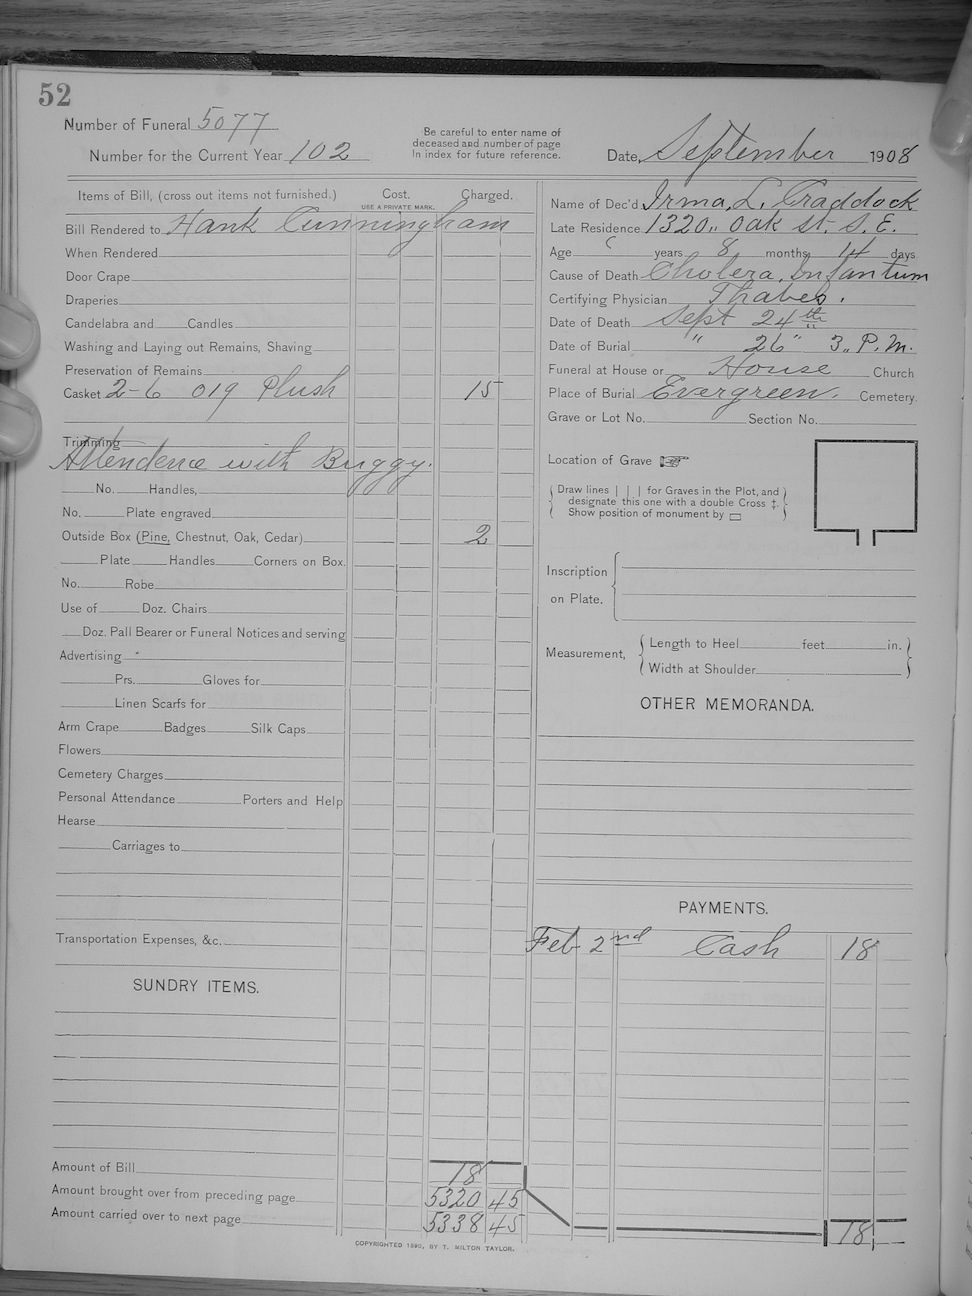 52
Number of Funeral 5077
Number for the Current Year 102
Be careful to enter name of
deceased and number of page
In index for future reference.
Date, September 1908
Items of Bill, (cross out items not furnished.) Cost. Charged.
USE A PRIVATE MARK.
Bill Rendered to Hank Cunningham
When Rendered
Door Crape
Draperies
Candelabra and Candles
Washing and Laying out Remains, Shaving
Preservation of Remains
Casket 2-6 019 Plush 15
Trimming
Attendence with Buggy.
No. Handles,
No. Plate engraved
Outside Box (Pine, Chestnut, Oak, Cedar) 2
Plate Handles Corners on Box.
No. Robe
Use of Doz. Chairs
Doz. Pall Bearer or Funeral Notices and serving
Advertising
Prs. Gloves for
Linen Scarfs for
Arm Crape Badges Silk Caps
Flowers
Cemetery Charges
Personal Attendance Porters and Help
Hearse
Carriages to
Transportation Expenses, &c.
SUNDRY ITEMS.
Amount of Bill 18
Amount brought over from preceding page 5320 45
Amount carried over to next page 5338 45
COPYRIGHTED 1890, BY T. MILTON TAYLOR.
Name of Dec'd Irma, L. Craddock
Late Residence 1320" Oak st. S. E.
Age years 8 months 14 days
Cause of Death Cholera, Infantum
Certifying Physician Thabes.
Date of Death Sept 24th
Date of Burial " 26" 3" P.M.
Funeral at House or House Church
Place of Burial Evergreen. Cemetery.
Grave or Lot No. Section No.
Location of Grave
Draw lines | | | for Graves in the Plot, and
designate this one with a double Cross ‡.
Show position of monument by ▭
Inscription
on Plate.
Measurement,
Length to Heel feet in.
Width at Shoulder
OTHER MEMORANDA.
PAYMENTS.
Feb 2nd Cash 18
18